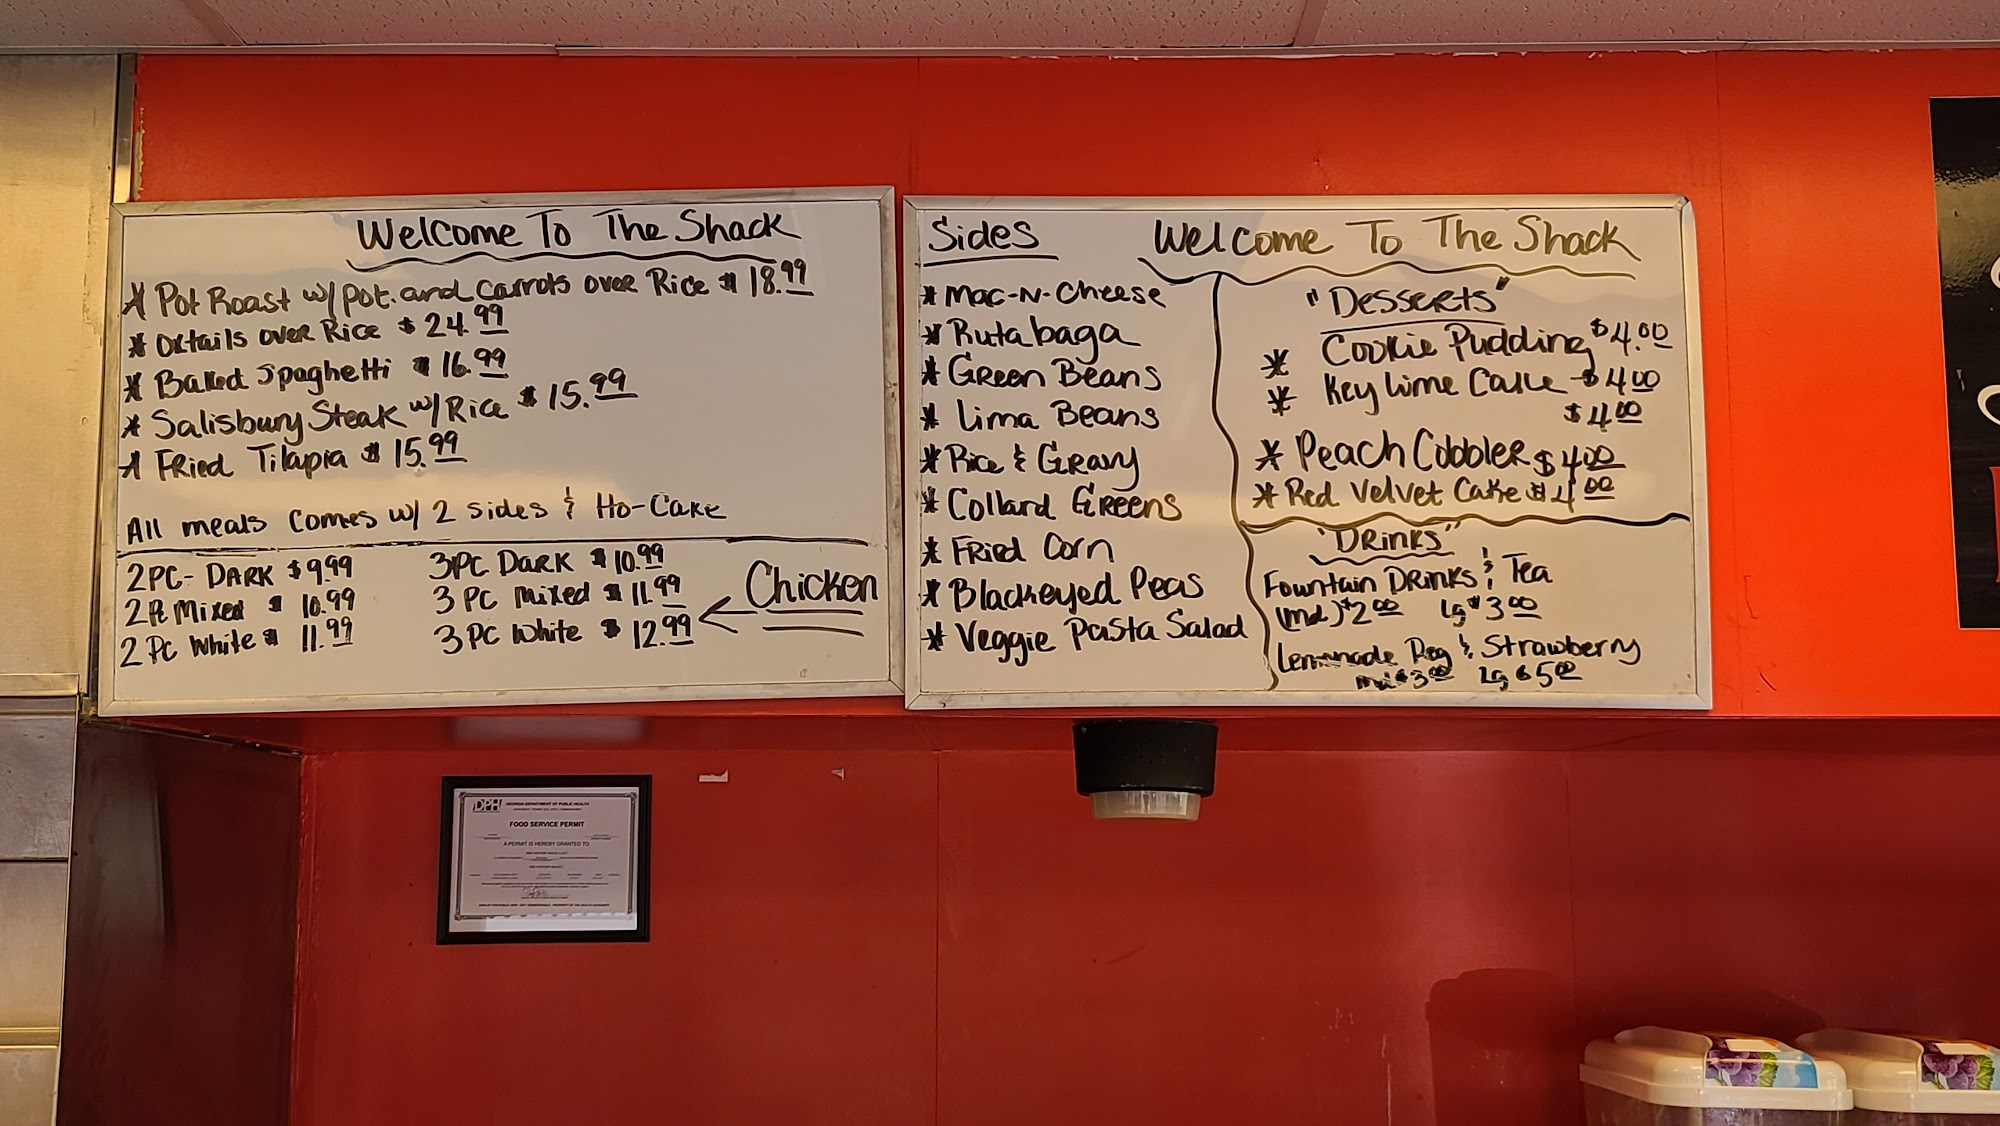 Welcome To The Shack
* Pot Roast w/ pot. and carrots over Rice $ 18.99
* Oxtails over Rice $ 24.99
* Baked Spaghetti $ 16.99
* Salisbury Steak w/ Rice $ 15.99
* Fried Tilapia $ 15.99
All meals comes w/ 2 sides & Ho-Cake
2PC- DARK $ 9.99
2Pc Mixed $ 10.99
2 Pc White $ 11.99
3PC Dark $ 10.99
3 PC mixed $ 11.99
3 PC White $ 12.99
Chicken
Sides
* Mac-N-Cheese
* Rutabaga
* Green Beans
* Lima Beans
* Rice & Gravy
* Collard Greens
* Fried Corn
* Blackeyed Peas
* Veggie Pasta Salad
Welcome To The Shack
"Desserts"
* Cookie Pudding $4.00
* Key Lime Cake $4.00
$4.00
* Peach Cobbler $4.00
* Red Velvet Cake $4.00
"Drinks"
Fountain Drinks & Tea
(md) $2.00 Lg $3.00
Lemonade Reg & Strawberry
md $3.00 Lg $5.00
DPH
GEORGIA DEPARTMENT OF PUBLIC HEALTH
FOOD SERVICE PERMIT
A PERMIT IS HEREBY GRANTED TO